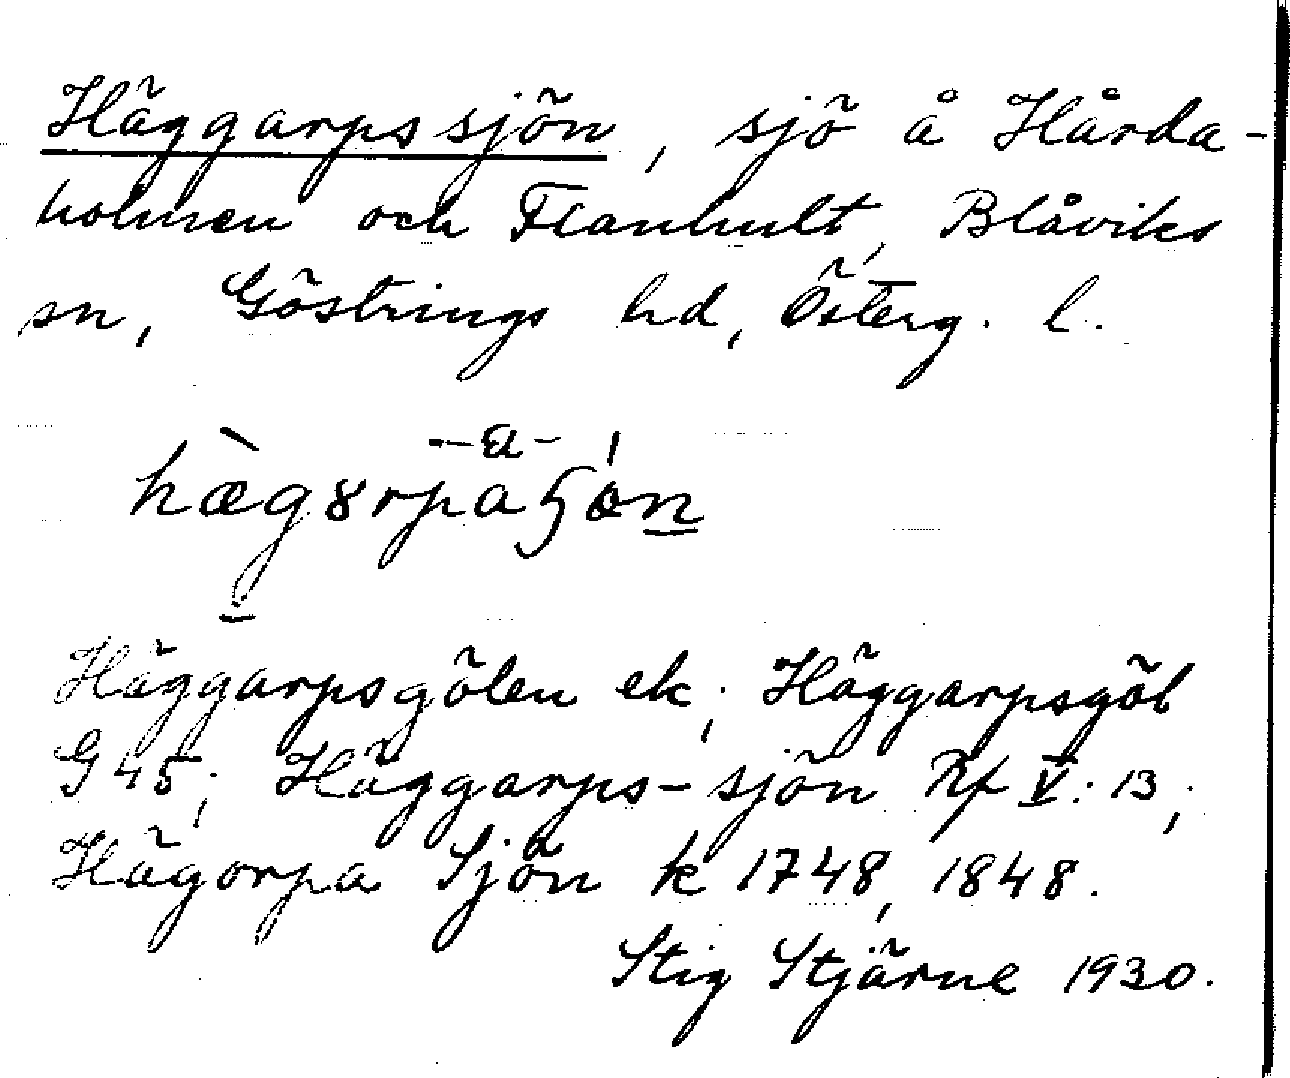 Häggarpssjön, sjö å Hårda-
holmen och Flanhult, Blåviks
sn, Göstrings hd, Österg. l.
-a-
hægɤrpaʃön
Häggarpsgölen ek; Häggarpsgöl
G 45; Häggarps-sjön Rf V: 13;
Hägorpa Sjön k 1748, 1848.
Stig Stjärne 1930.